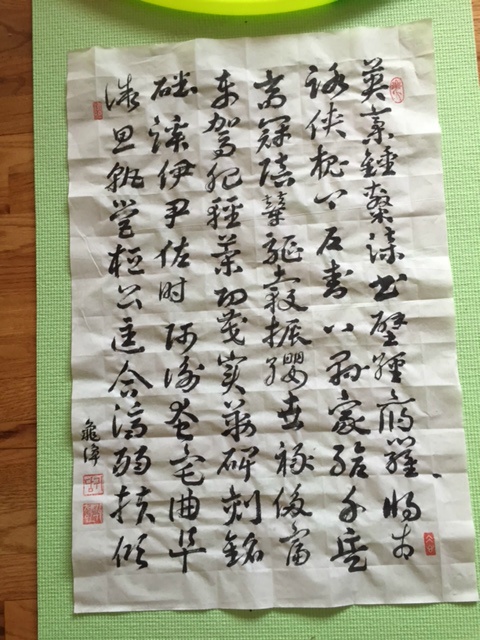 英藁鍾隸漆書壁經府羅將相
路俠槐卿戶封八縣家給千兵
高冠陪輦驅轂振纓世祿侈富
車駕肥輕策功茂實勒碑刻銘
磻溪伊尹佐時阿衡奄宅曲阜
微旦孰營桓公匡合濟弱扶傾